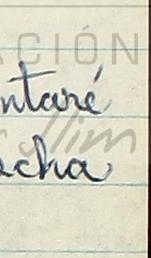 ACIÓN
ntaré
Slim
cha